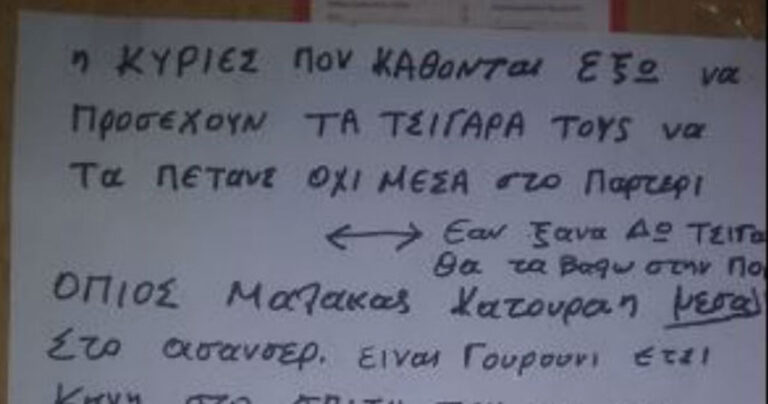 η ΚΥΡΙΕΣ ΠΟΥ ΚΑΘΟΝΤΑΙ ΕΞΩ να
ΠροσΕΧΟΥΝ ΤΑ ΤΣΙΓΑΡΑ ΤΟΥΣ να
Τα ΠΕΤΑΝΕ ΟΧΙ ΜΕΣΑ στο Παρτερι
Εαν ξανα Δω ΤΣΙΓΑ
Θα τα βαθω στην Πο
ΟΠΙΟΣ Μαλακας Κατουραη μεσα
Στο ασανσερ. ειναι Γουρουνι ετσι
Κανη στο σπιτι του